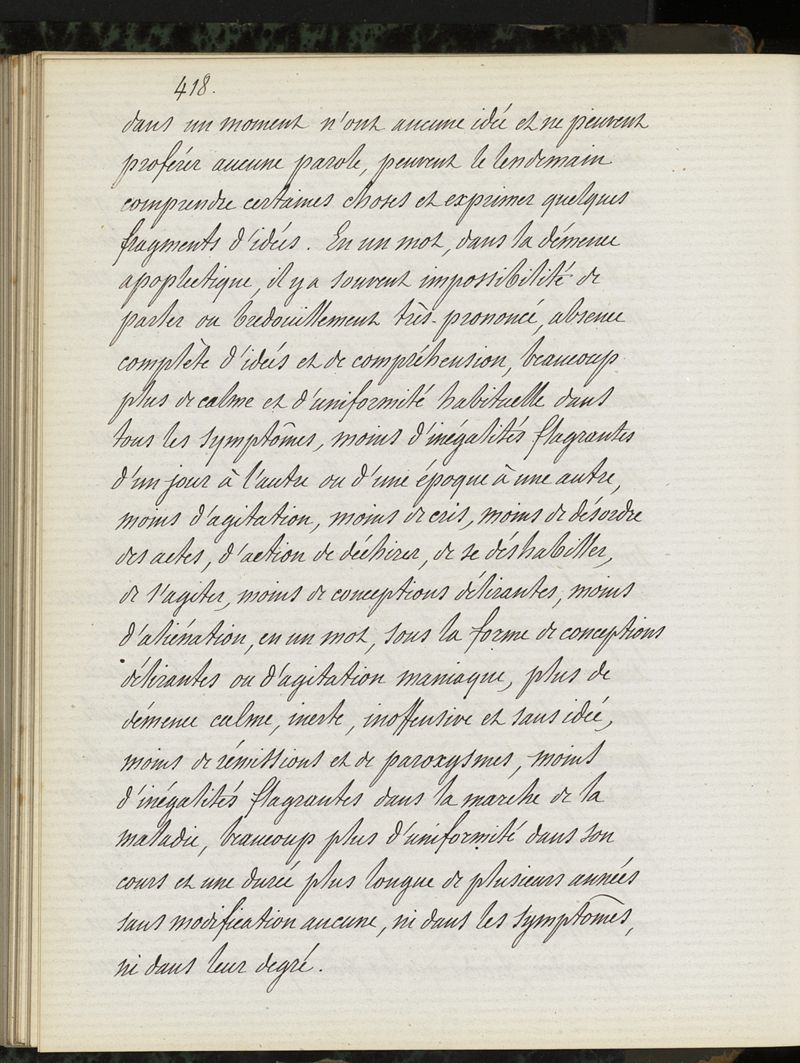 418.
dans un moment n'ont aucune idée et ne peuvent
proférer aucune parole, peuvent le lendemain
comprendre certaines choses et exprimer quelques
fragments d'idées. En un mot, dans la démence
apoplectique, il y a souvent impossibilité de
parler ou bredouillement très-prononcé, absence
complète d'idées et de compréhension, beaucoup
plus de calme et d'uniformité habituelle dans
tous les symptômes, moins d'inégalités flagrantes
d'un jour à l'autre ou d'une époque à une autre,
moins d'agitation, moins de cris, moins de désordre
des actes, d'action de déchirer, de se déshabiller,
de s'agiter, moins de conceptions délirantes, moins
d'aliénation, en un mot, sous la forme de conceptions
délirantes ou d'agitation maniaque, plus de
démence calme, inerte, inoffensive et sans idée,
moins de rémissions et de paroxysmes, moins
d'inégalités flagrantes dans la marche de la
maladie, beaucoup plus d'uniformité dans son
cours et une durée plus longue de plusieurs années
sans modification aucune, ni dans les symptômes,
ni dans leur degré.